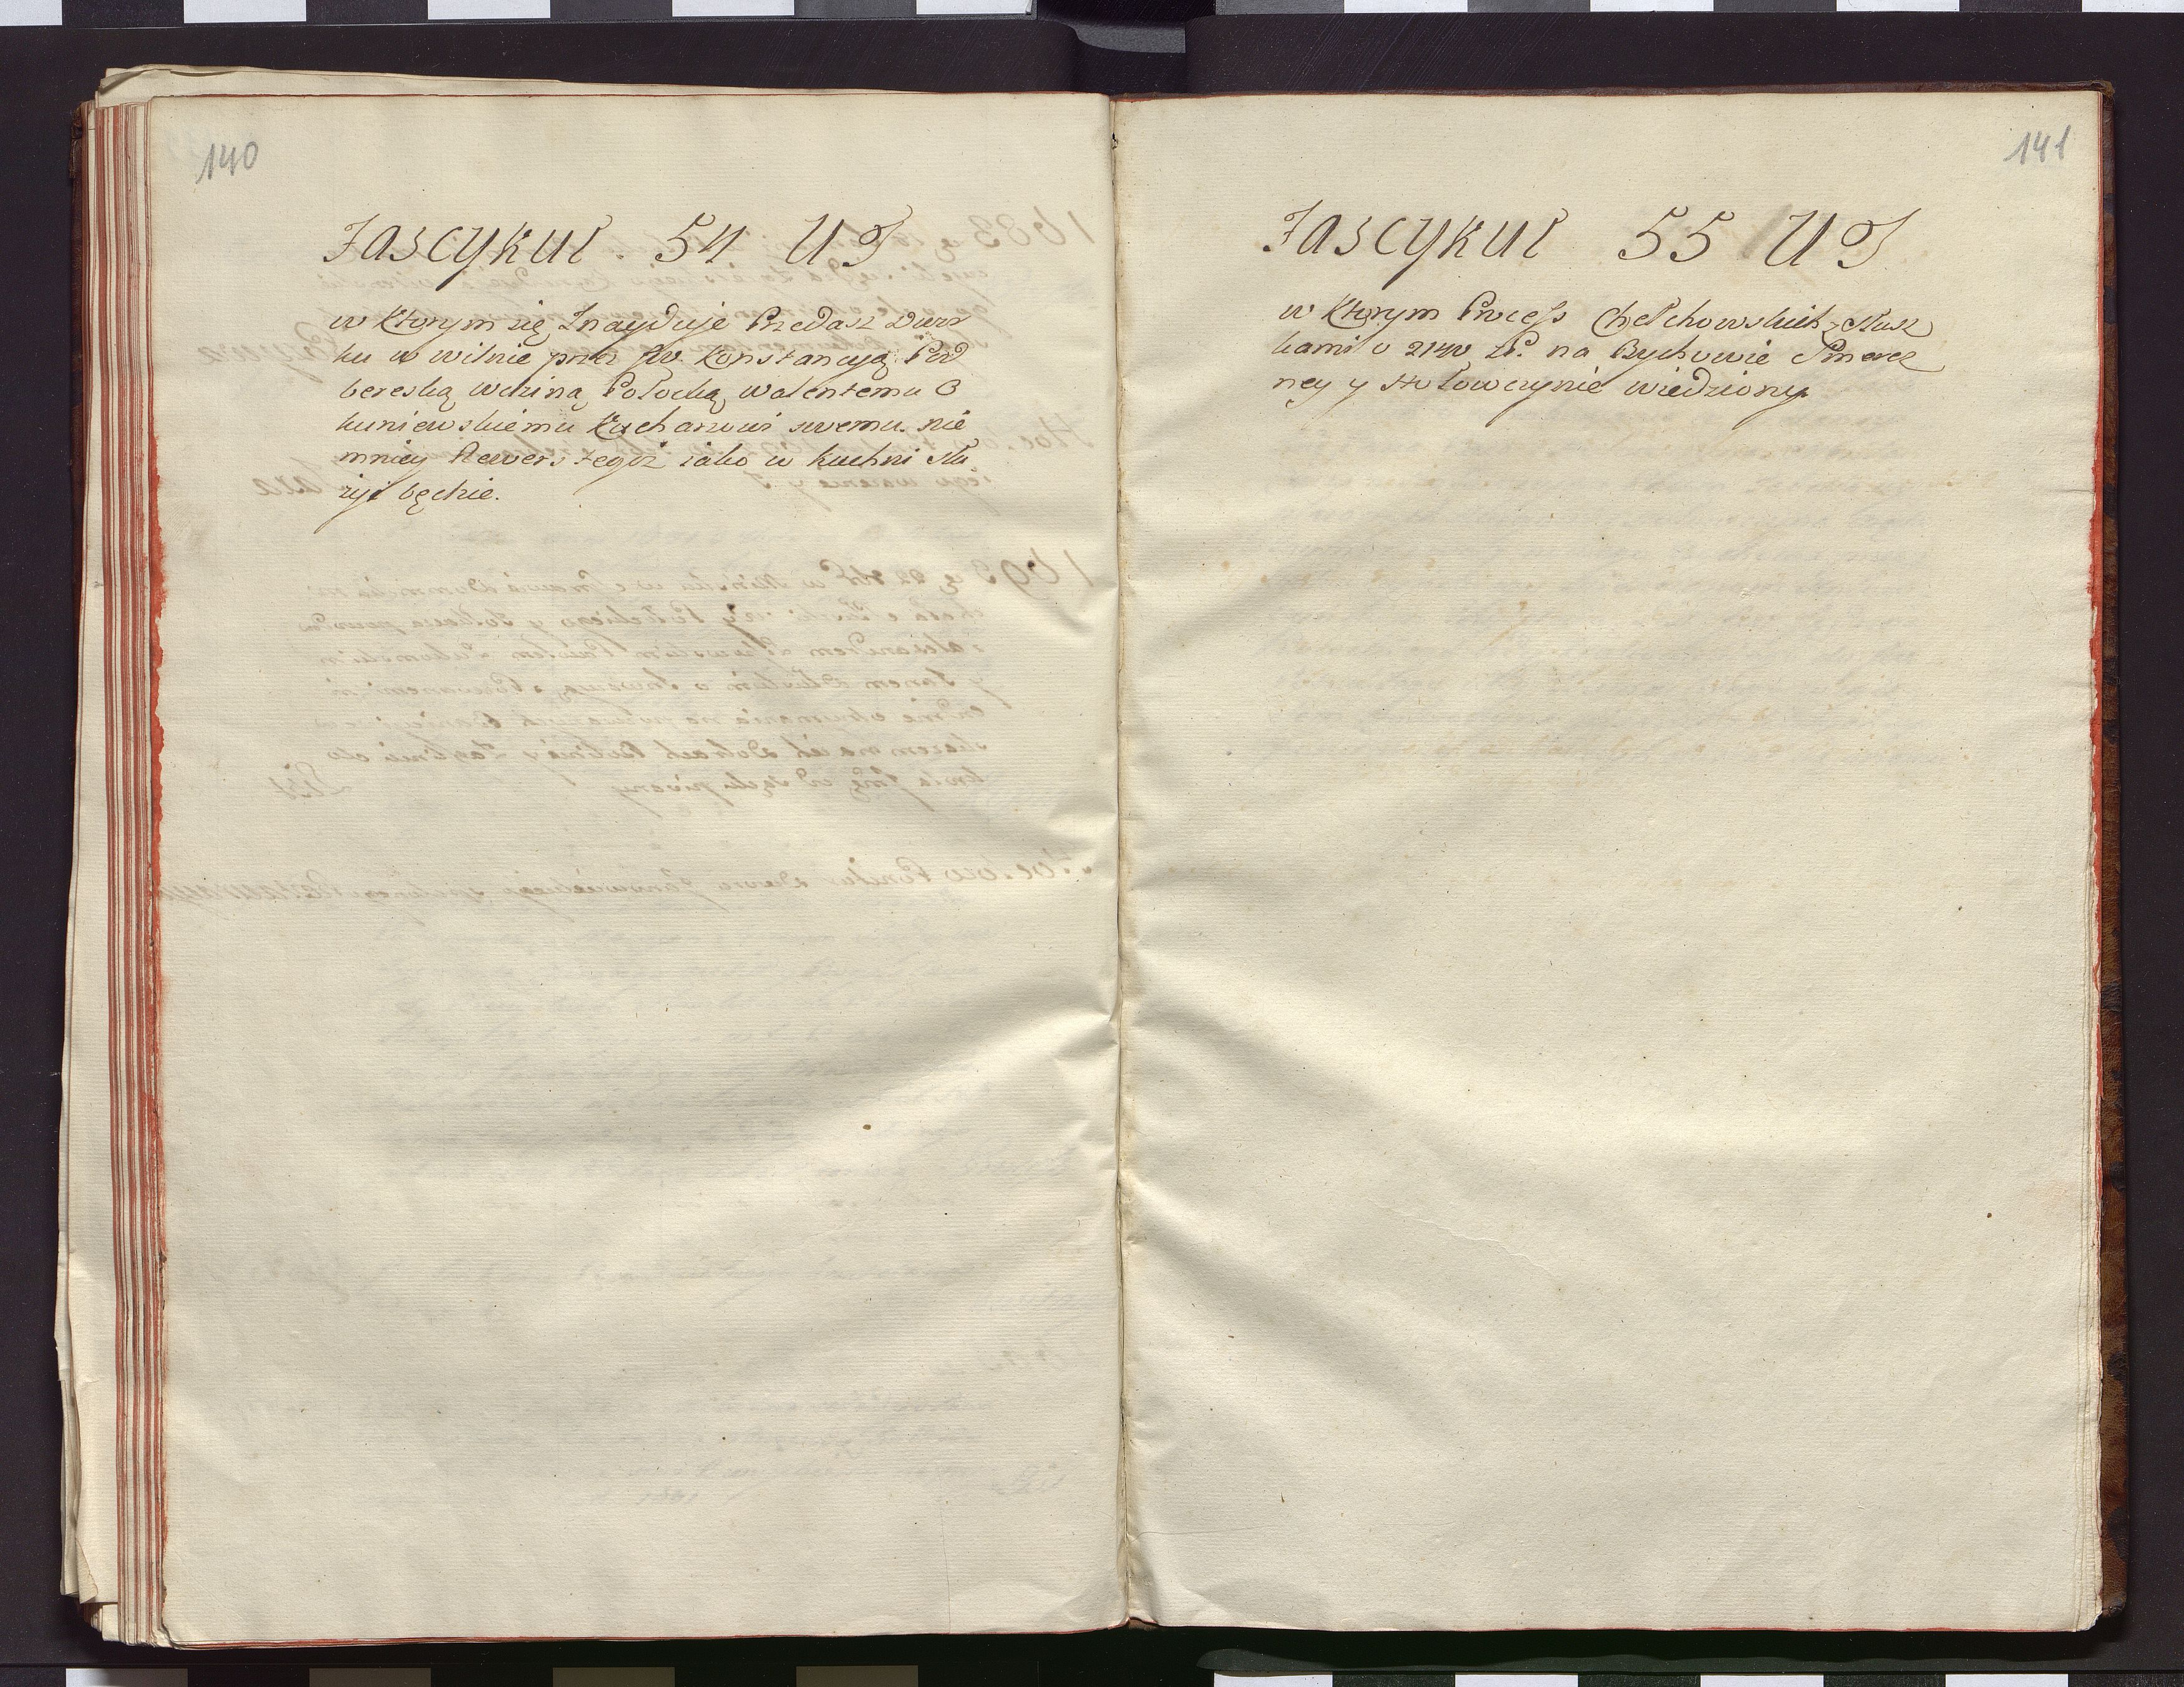 140
Fascykuł 54 U J
w Ktorym się Znayduje Przedasz Dwor
ku w wilnie przez JW. Konstancyą Pod
bereską Wdziną Połocką walentemu O
kuniewskiemu Kucharzowi swemu. nie
mniey Rewers tegoż iako w kuchni słu
żyć będzie.
141
Fascykuł 55 U J
w Ktorym Process Chełchowskich z Słusz
kami o zł. na Bychowie
ney y Hołowczynie wiedziony